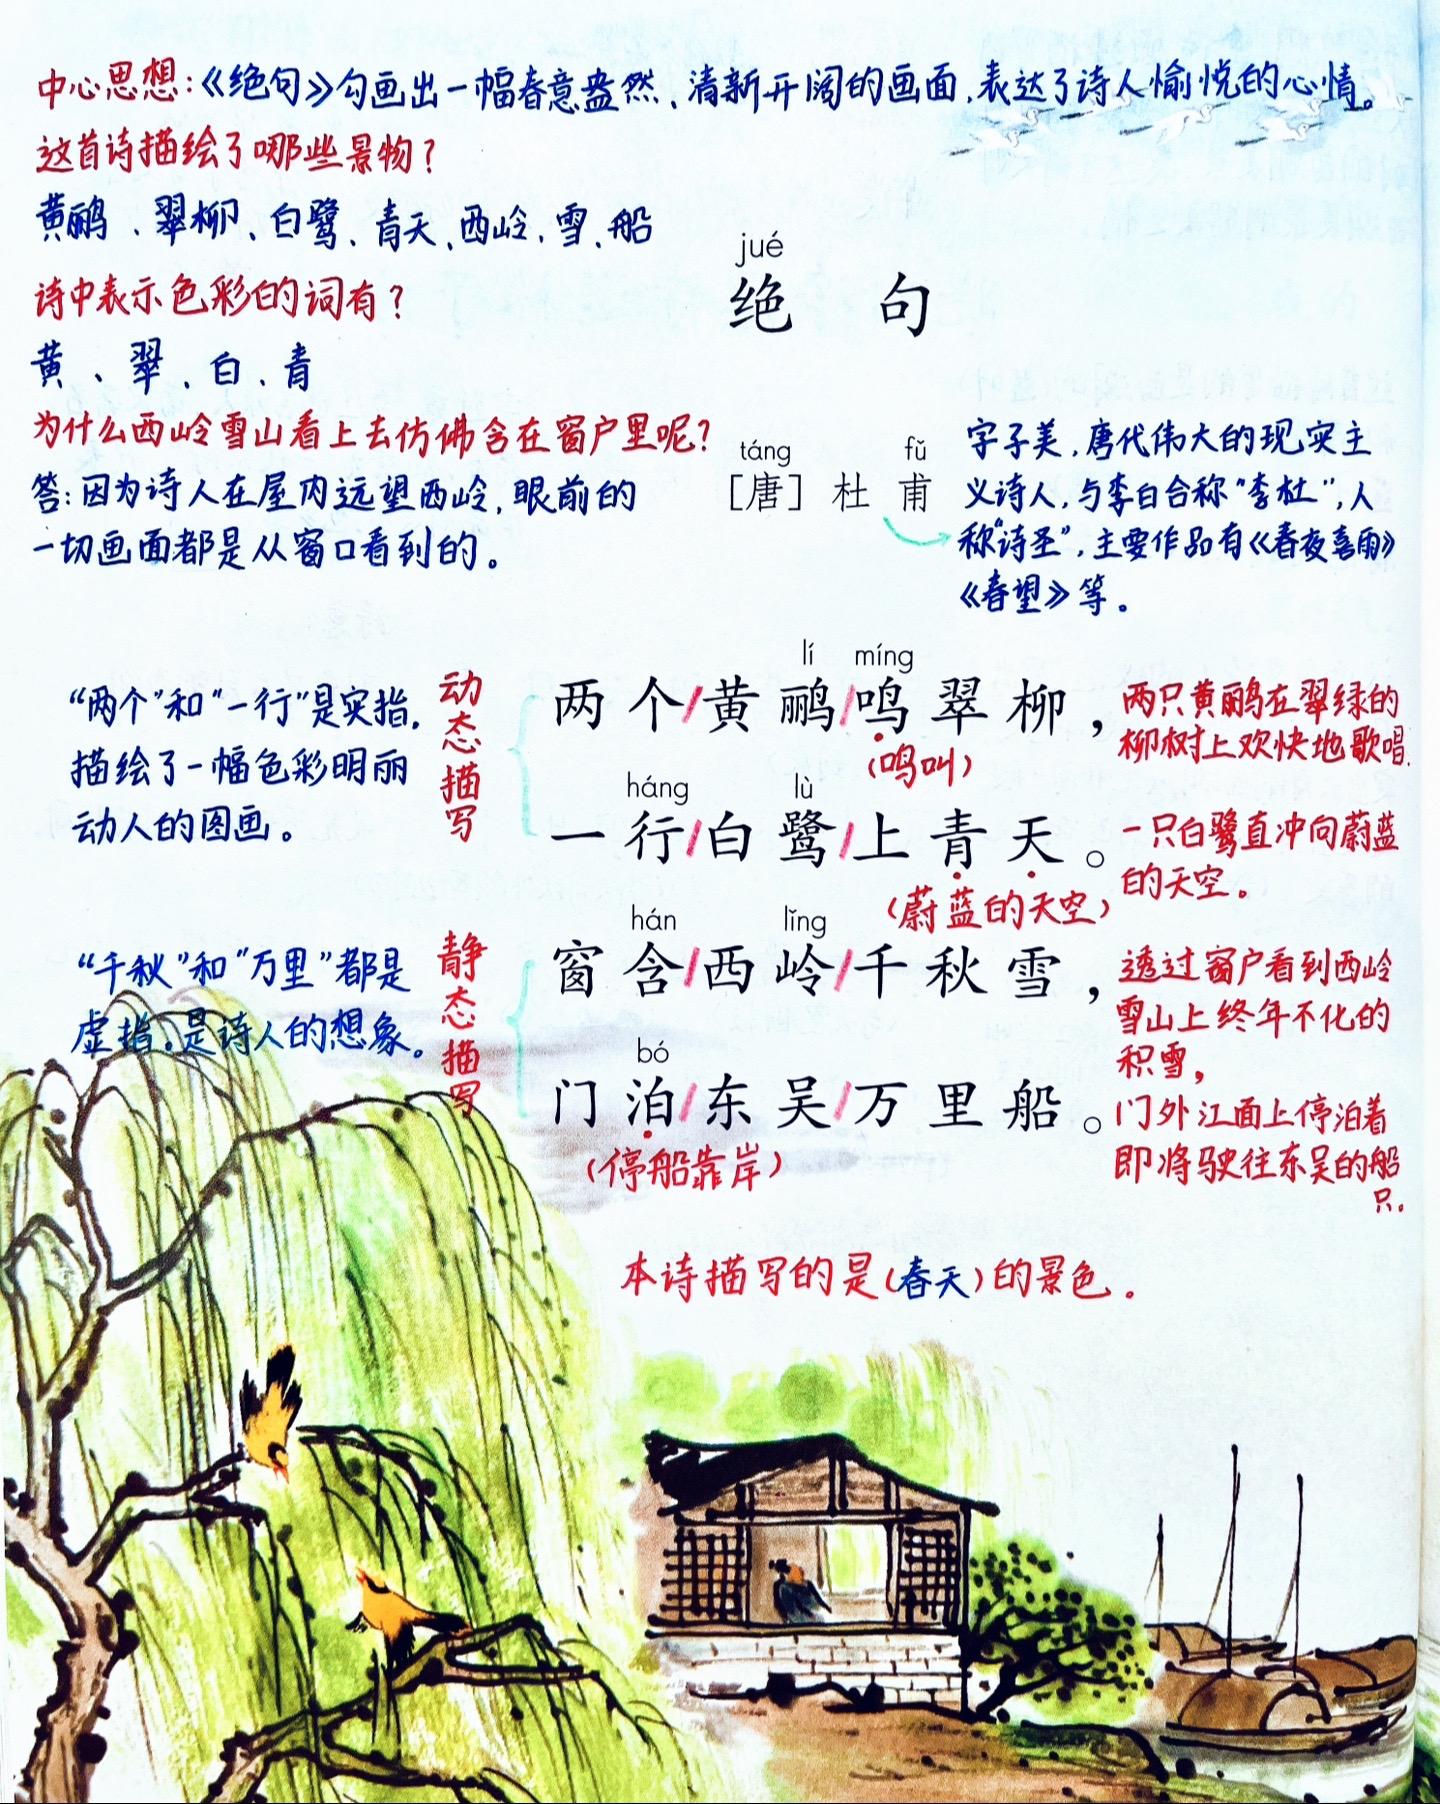 中心思想：《绝句》勾画出一幅春意盎然、清新开阔的画面，表达了诗人愉悦的心情。
这首诗描绘了哪些景物？
黄鹂、翠柳、白鹭、青天、西岭、雪、船
诗中表示色彩的词有？
黄、翠、白、青
为什么西岭雪山看上去仿佛含在窗户里呢？
答：因为诗人在屋内远望西岭，眼前的
一切画面都是从窗口看到的。
jué
绝 句
táng fǔ
［唐］杜 甫
字子美，唐代伟大的现实主
义诗人，与李白合称“李杜”，人
称“诗圣”，主要作品有《春夜喜雨》
《春望》等。
“两个”和“一行”是实指，
描绘了一幅色彩明丽
动人的图画。
动态描写
lí míng
两个/黄鹂/鸣翠柳，
(鸣叫)
两只黄鹂在翠绿的
柳树上欢快地歌唱.
háng lù
一行/白鹭/上青天。
(蔚蓝的天空)
一只白鹭直冲向蔚蓝
的天空。
“千秋”和“万里”都是
虚指。是诗人的想象。
静态描写
hán lǐng
窗含/西岭/千秋雪，
透过窗户看到西岭
雪山上终年不化的
积雪，
bó
门泊/东吴/万里船。
(停船靠岸)
门外江面上停泊着
即将驶往东吴的船
只.
本诗描写的是(春天)的景色.